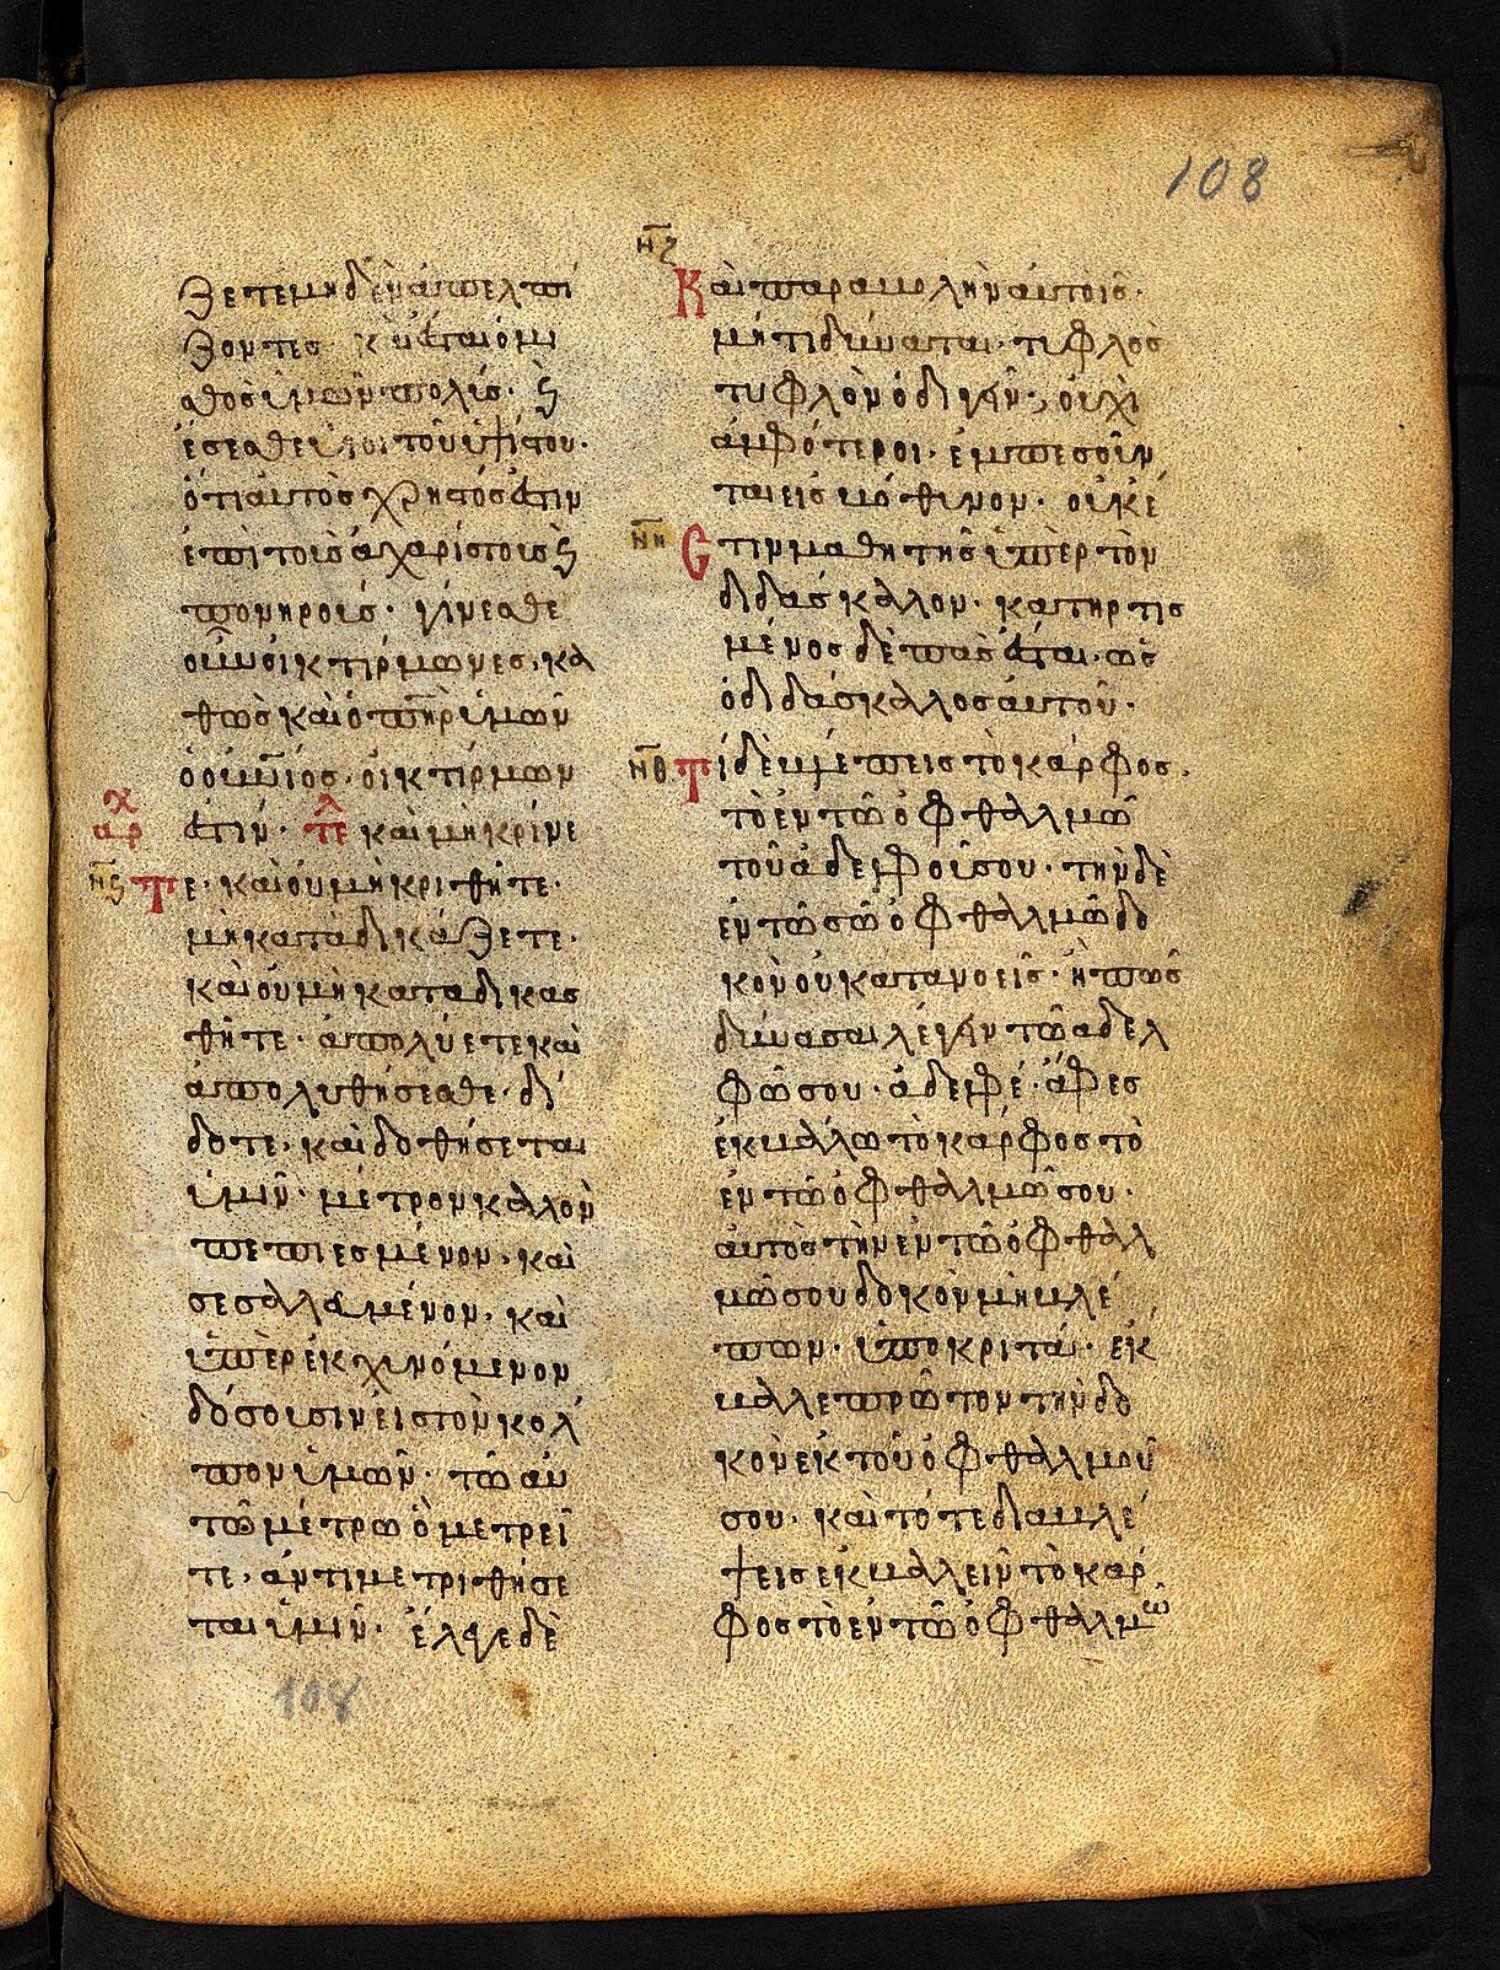 108
ζετε μηδὲν ἀπελπί
ζοντες· κ ἔσται ὁ μι
σθὸς ὑμῶν πολύς· ϗ
ἔσεσθε υἱοι τοῦ ὑψίστου·
ὅτι αὐτὸς χρηστός ἐστιν
ἐπὶ τοὺς ἀχαρίστους ϗ
πονηρούς· γίνεσθε
οὖν οἰκτίρμωνες, κα
θὼς καὶ ὁ π̅η̅ρ ὑμῶν
ὁ οὐνιος· οἰκτίρμων
ἐστίν· τε^λ καὶ μὴ κρίνε
αρ^χ
ν̅ϛ τε· καὶ οὐ μὴ κριθῆτε·
μὴ καταδικάζετε·
καὶ οὐ μὴ καταδικασ
θῆτε· ἀπολύετε καὶ
ἀπολυθήσεσθε· δί
δοτε· καὶ δοθήσεται
ὑμῖν· μέτρον καλλὸν
πεπιεσμένον, καὶ
σεσαλλευμένον, καὶ
ὑπὲρ ἐκχυνόμενον
δόσουσιν εἰς τὸν κόλ
πον ὑμῶν· τῶ αὐ
τῶ μέτρω ὃ μετρεῖ
τε, ἀντιμετριθήσε
ται ὑμῖν· ἔλεγε δὲ
108
ν̅ζ
Καὶ παραβολὴν αὐτοῖς·
μήτι δύναται· τιφλὸσ
τυφλὸν ὁδιγεῖν·, οὐχὶ
ἀμφότεροι· ἐμπεσοῦν
ται εἰς βόθυνον· οὐκ ἔ
ν̅η ϲτιν μαθητὴς ὑπὲρ τὸν
διδάσκαλον· κατηρτισ
μένος δὲ πᾶς ἔσται· ὡς
ὁ διδάσκαλος αὐτοῦ·
ν̅θ Τί δὲ βλέπεις τὸ κάρφος,
τὸ ἐν τῶ ὀφθαλμῶ
τοῦ ἀδελφοῦ σου· τὴν δὲ
ἐν τῶ σῶ ὀφθαλμῶ δο
κὸν οὐ κατανοεῖς· ἢ πῶς
δύνασαι λέγειν τῶ αδελ
φῶ σου· ἀδελφέ· ἄφες
ἐκβάλλω τὸ κάρφος τὸ
ἐν τῶ ὀφθαλμῶ σου·
αὐτὸς τὴν ἐν τῶ ὀφθαλ
μῶ σου δοκὸν μὴ βλέ
πων· ὑποκριτά· εκ
βαλλε πρῶτον τὴν δο
κὸν ἐκ τοῦ ὀφθαλμοῦ
σου· καὶ τότε διαβλέ
ψεις ἐκβαλλεῖν τὸ κάρ
φος τὸ ἐν τῶ ὀφθαλμῶ